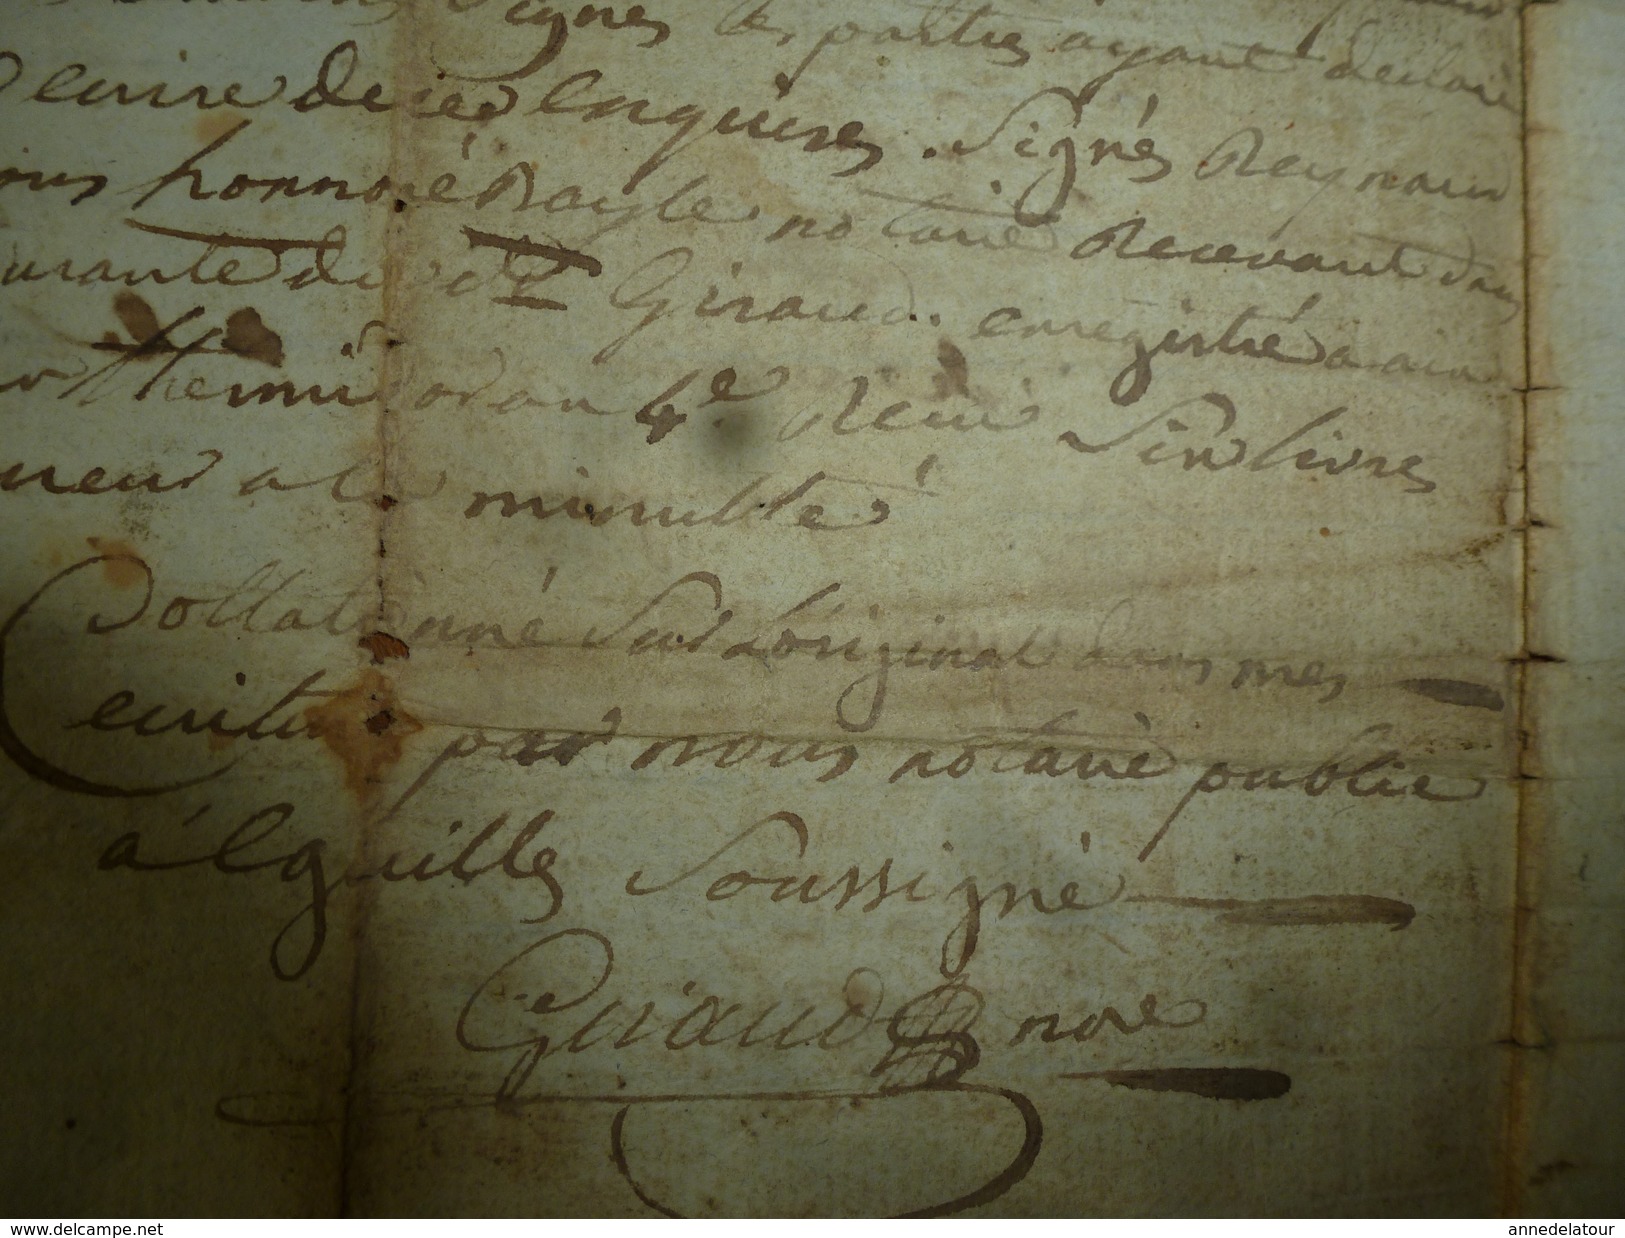 signés les parties ayant declaré
ecrire de ce enquises. Signés Reynaud
honnoré Bayle notaire Recevant dans
de Giraud. enregistré a aix
thermidor an 4e Reçu Six livres
a la minutte
Collationné Sur Lóriginal dans mes
ecritures par nous notaire public
á Eguilles Soussigné
Giraud nore
www.delcampe.net
annedelatour